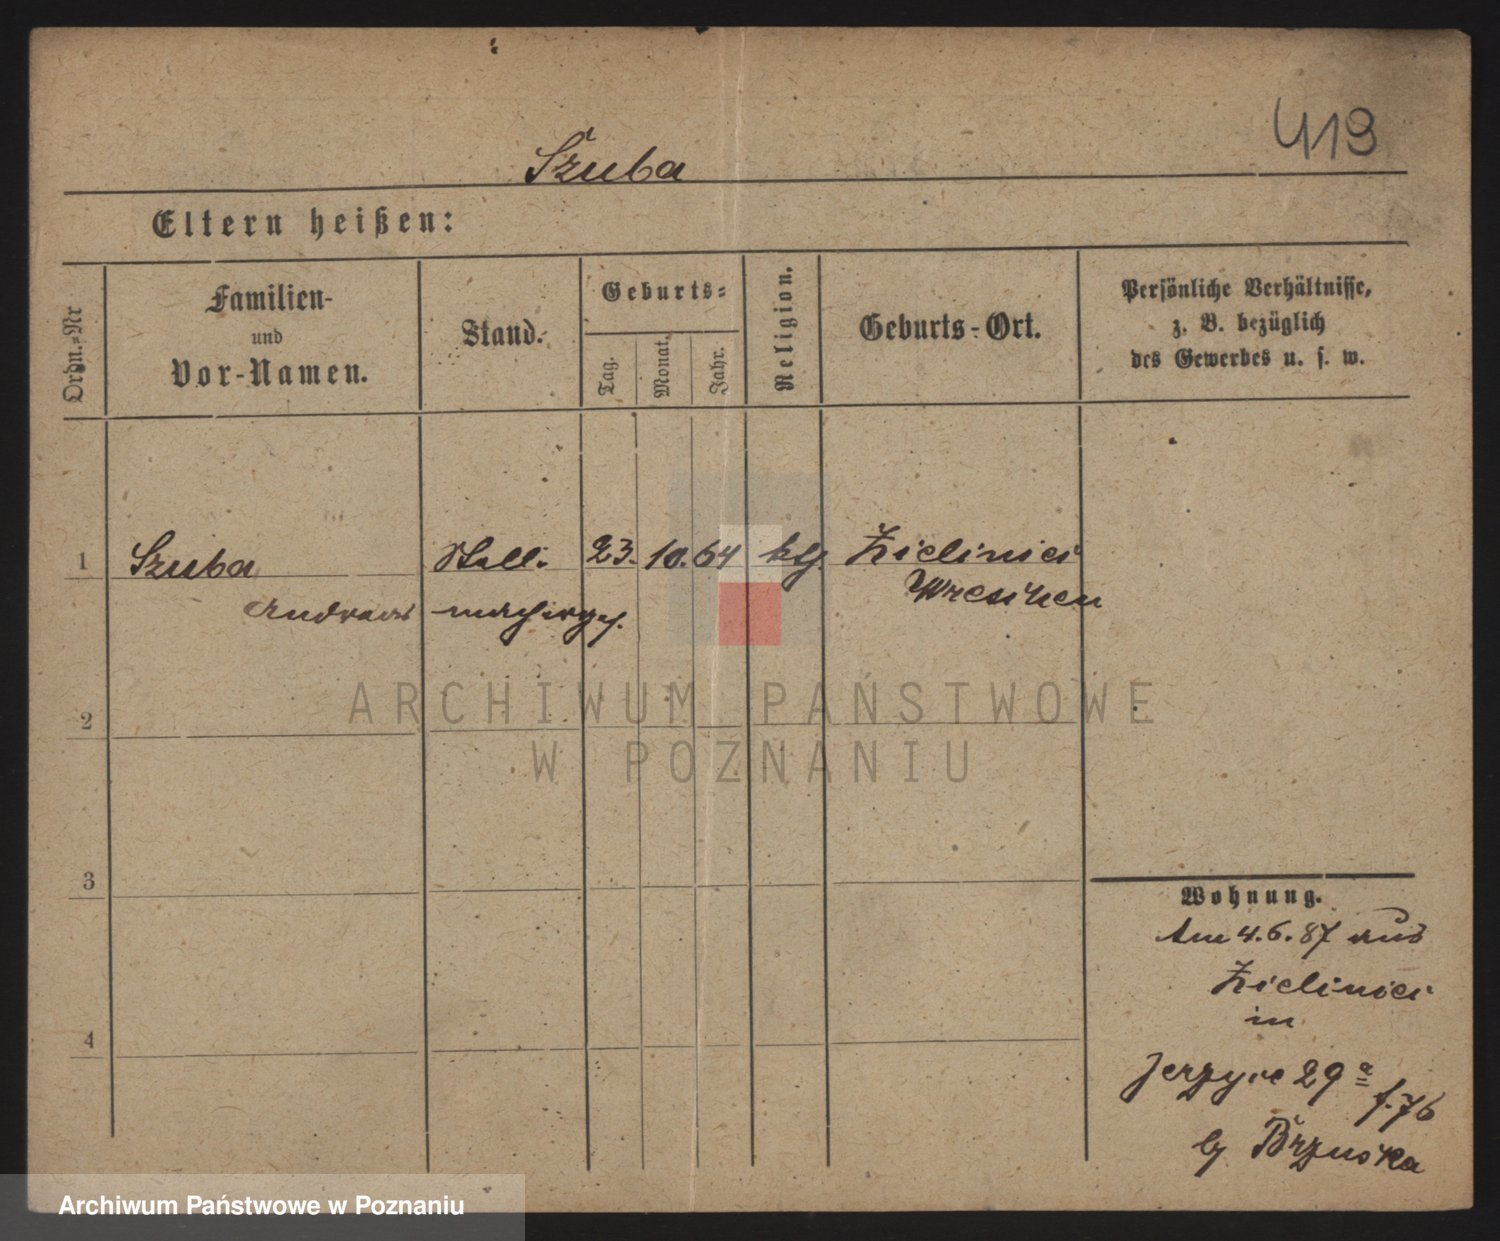 419
Szuba
Eltern heißen:
Ordn.-Nr
Familien-
und
Vor-Namen.
Stand.
Geburts-
Tag.
Monat.
Jahr.
Religion.
Geburts-Ort.
Persönliche Verhältnisse,
z. B. bezüglich
des Gewerbes u. s. w.
1 Szuba Stell- 23. 10. 64 kth. Zielinici
Andreas machergs. Wreschen
ARCHIWUM PAŃSTWOWE
W POZNANIU
2
3
4
Wohnung.
Am 4.6.87 aus
Zielinici
in
Jerzyce 29 a
f. 76
b/ Brzuska
Archiwum Państwowe w Poznaniu